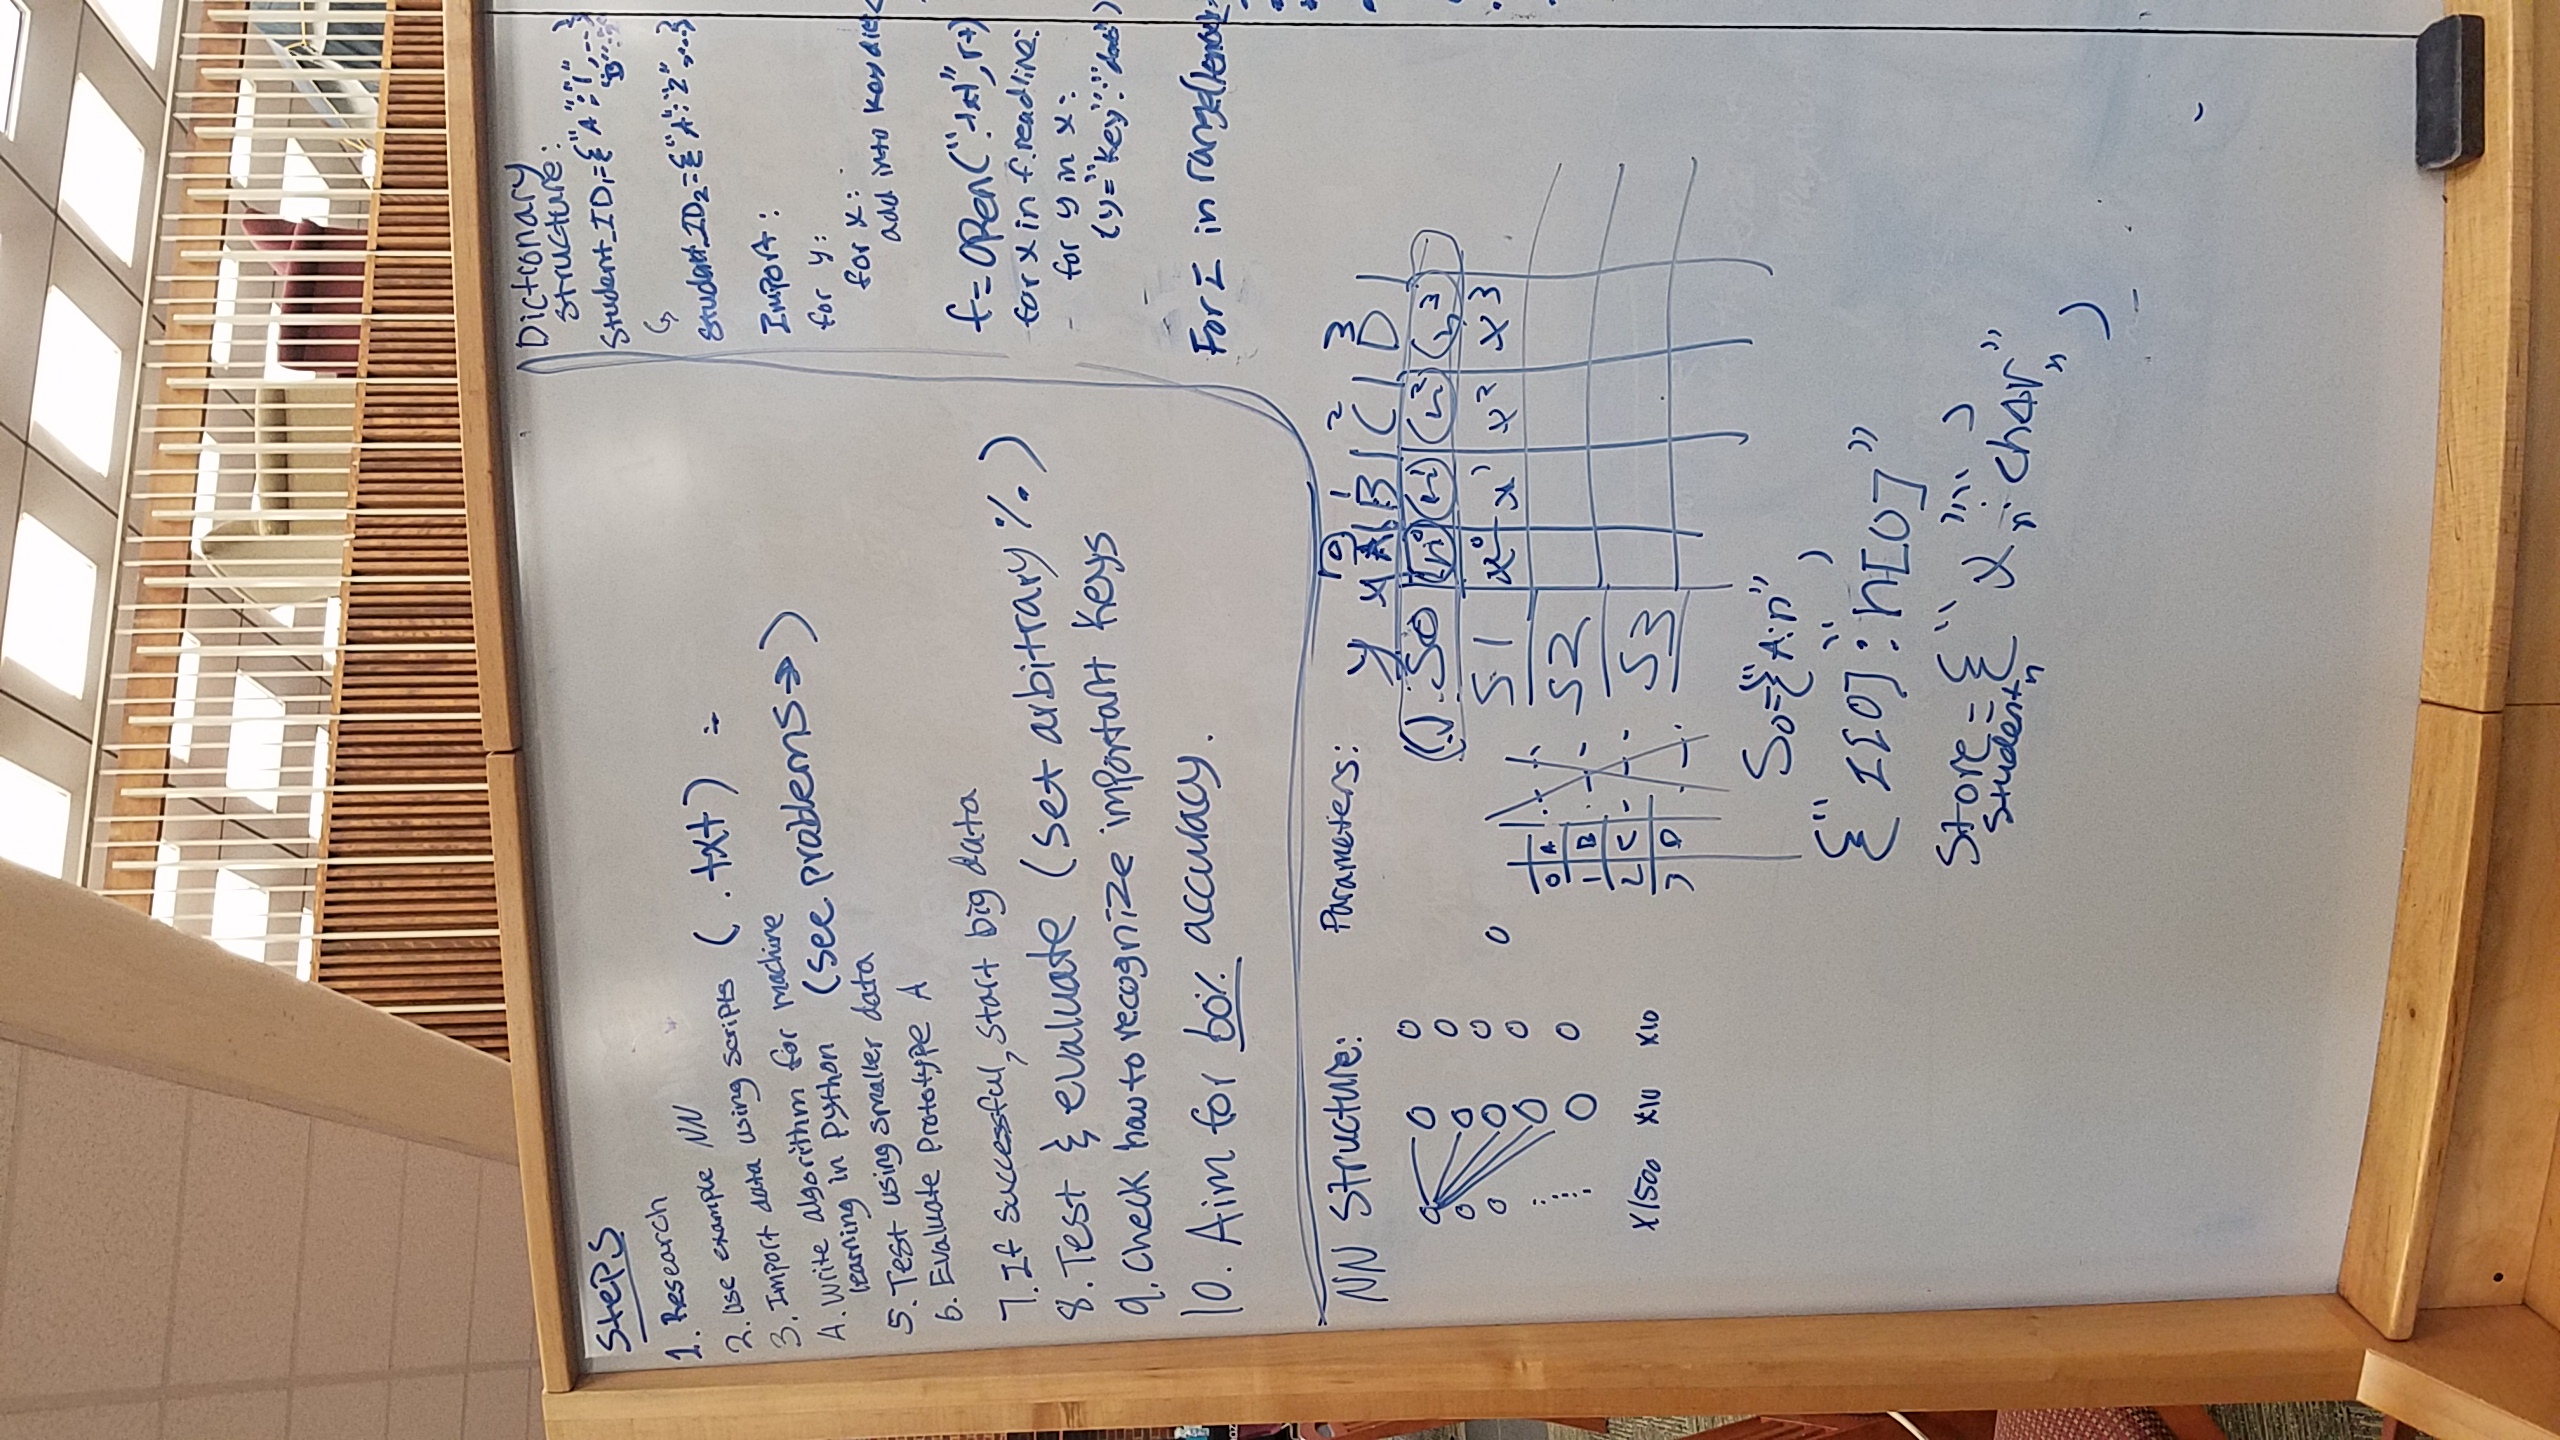 Steps
1. Research
2. Use example NN
3. Import data using scripts (.txt)
4. Write algorithm for machine
learning in python (see problems→)
5. Test using smaller data
6. Evaluate Prototype A
7. If successful, start big data
8. Test & evaluate (set arbitrary %.)
9. Check how to recognize important keys
10. Aim for 60% accuracy.
Dictionary
structure:
Student_ID1={"A":"1",
"B"
Student_ID2={"A":"2"
Import:
for y:
for x:
add into key
f=open(".txt", r+)
for x in f.readline:
for y in x:
{y="key":"
For I in range(
NN Structure:
x1500 x10 x10
Parameters:
0 1 2 3
y x A B C D
S0
S1 x0 x1 x2 x3
S2
S3
0 A
1 B
2 C
3 D
S0={"A:n"
{" I[0]: n[0] "
Store={"
Student n